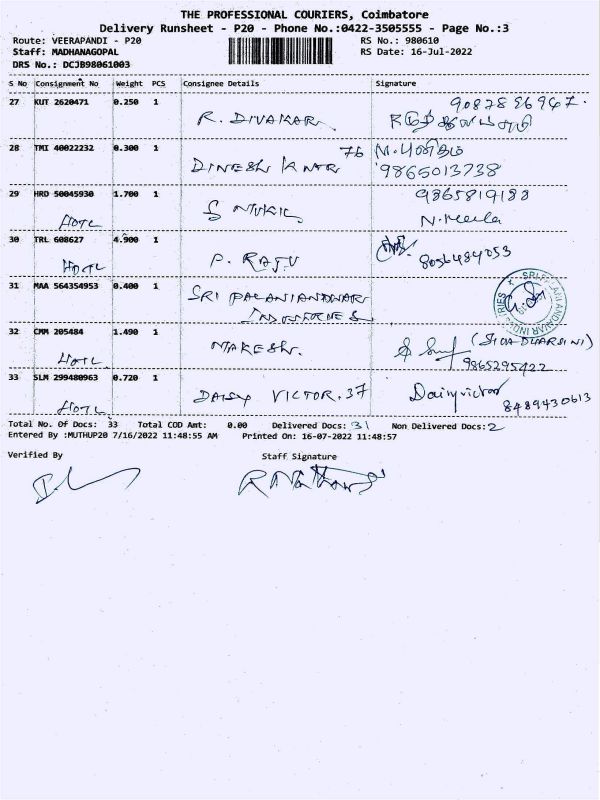 THE PROFESSIONAL COURIERS, Coimbatore
Delivery Runsheet - P20 - Phone No.:0422-3505555 - Page No.:3
Route: VEERAPANDI - P20 RS No.: 980610
Staff: MADHANAGOPAL RS Date: 16-Jul-2022
DRS No.: DCJB98061003
S No Consignment No Weight PCS Consignee Details Signature
9087896967.
27 KUT 2620471 0.250 1 R. DIVAKAR
28 TMI 40022232 0.300 1 DINESH KMR 76
9865013738
29 HRD 50045930 1.700 1 9865819188
HOTL N. Meela
30 TRL 608627 4.900 1 8056484053
HOTL P. RAJU
31 MAA 564354953 0.400 1 SRI PALANIANDAVAR
32 CMM 205484 1.490 1 (SIVA DHARSINI)
HOTL MAKESH. 9865295422
33 SLM 299480963 0.720 1 DAISY VICTOR.37 Daisy victor
HOTL 8489430613
Total No. Of Docs: 33 Total COD Amt: 0.00 Delivered Docs: 31 Non Delivered Docs: 2
Entered By :MUTHUP20 7/16/2022 11:48:55 AM Printed On: 16-07-2022 11:48:57
Verified By Staff Signature